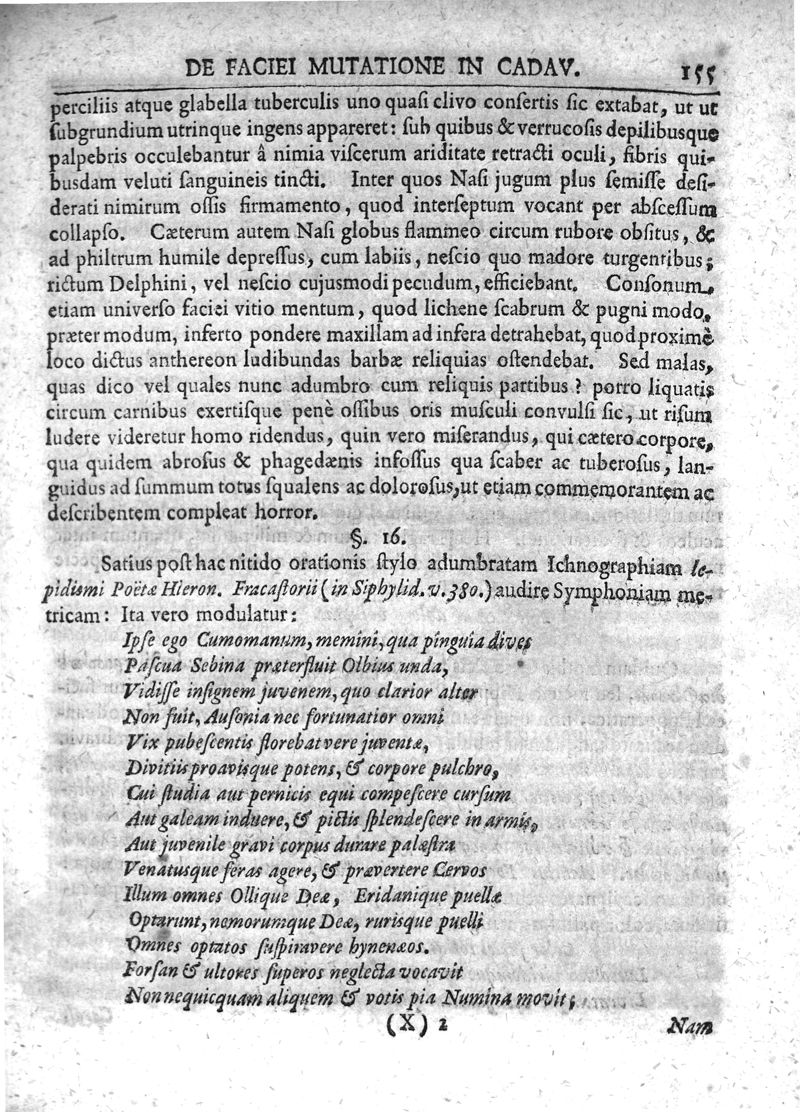 DE FACIEI MUTATIONE IN CADAV. 155
perciliis atque glabella tuberculis uno quaſi clivo confertis ſic extabat, ut ut
ſubgrundium utrinque ingens appareret: ſub quibus & verrucoſis depilibusque
palpebris occulebantur â nimia viſcerum ariditate retracti oculi, fibris qui-
busdam veluti ſanguineis tincti. Inter quos Naſi jugum plus ſemiſſe deſi-
derati nimirum oſſis firmamento, quod interſeptum vocant per abſceſſum
collapſo. Cæterum autem Naſi globus flammeo circum rubore obſitus, &
ad philtrum humile depreſſus, cum labiis, neſcio quo madore turgentibus;
rictum Delphini, vel neſcio cujusmodi pecudum, efficiebant. Conſonum,
etiam univerſo faciei vitio mentum, quod lichene ſcabrum & pugni modo,
præter modum, inferto pondere maxillam ad infera detrahebat, quod proximè
loco dictus anthereon ludibundas barbæ reliquias oſtendebat. Sed malas,
quas dico vel quales nunc adumbro cum reliquis partibus? porro liquatis
circum carnibus exertiſque penè oſſibus oris muſculi convulſi ſic, ut riſum
ludere videretur homo ridendus, quin vero miſerandus, qui cætero corpore,
qua quidem abroſus & phagedænis infoſſus qua ſcaber ac tuberoſus, lan-
guidus ad ſummum totus ſqualens ac doloroſus, ut etiam commemorantem ac
deſcribentem compleat horror.
§. 16.
Satius poſt hac nitido orationis ſtylo adumbratam Ichnographiam le-
pidismi Poëtæ Hieron. Fracaſtorii (in Siphylid. v. 380.) audire Symphoniam me-
tricam: Ita vero modulatur:
Ipſe ego Cumomanum, memini, qua pinguia dives
Paſcua Sebina præterfluit Olbius unda,
Vidiſſe inſignem juvenem, quo clarior alter
Non fuit, Auſonia nec fortunatior omni
Vix pubeſcentis florebat vere juventæ,
Divitiis proavisque potens, & corpore pulchro,
Cui ſtudia aut pernicis equi compeſcere curſum
Aut galeam induere, & pictis ſplendeſcere in armis,
Aut juvenile gravi corpus durare palæſtra
Venatusque feras agere, & prævertere Cervos
Illum omnes Ollique Deæ, Eridanique puellæ
Optarunt, nemorumque Deæ, rurisque puelli
Omnes optatos ſuſpiravere hynenæos.
Forſan & ultores ſuperos neglecta vocavit
Non nequicquam aliquem & votis pia Numina movit;
(X) 2 Nam